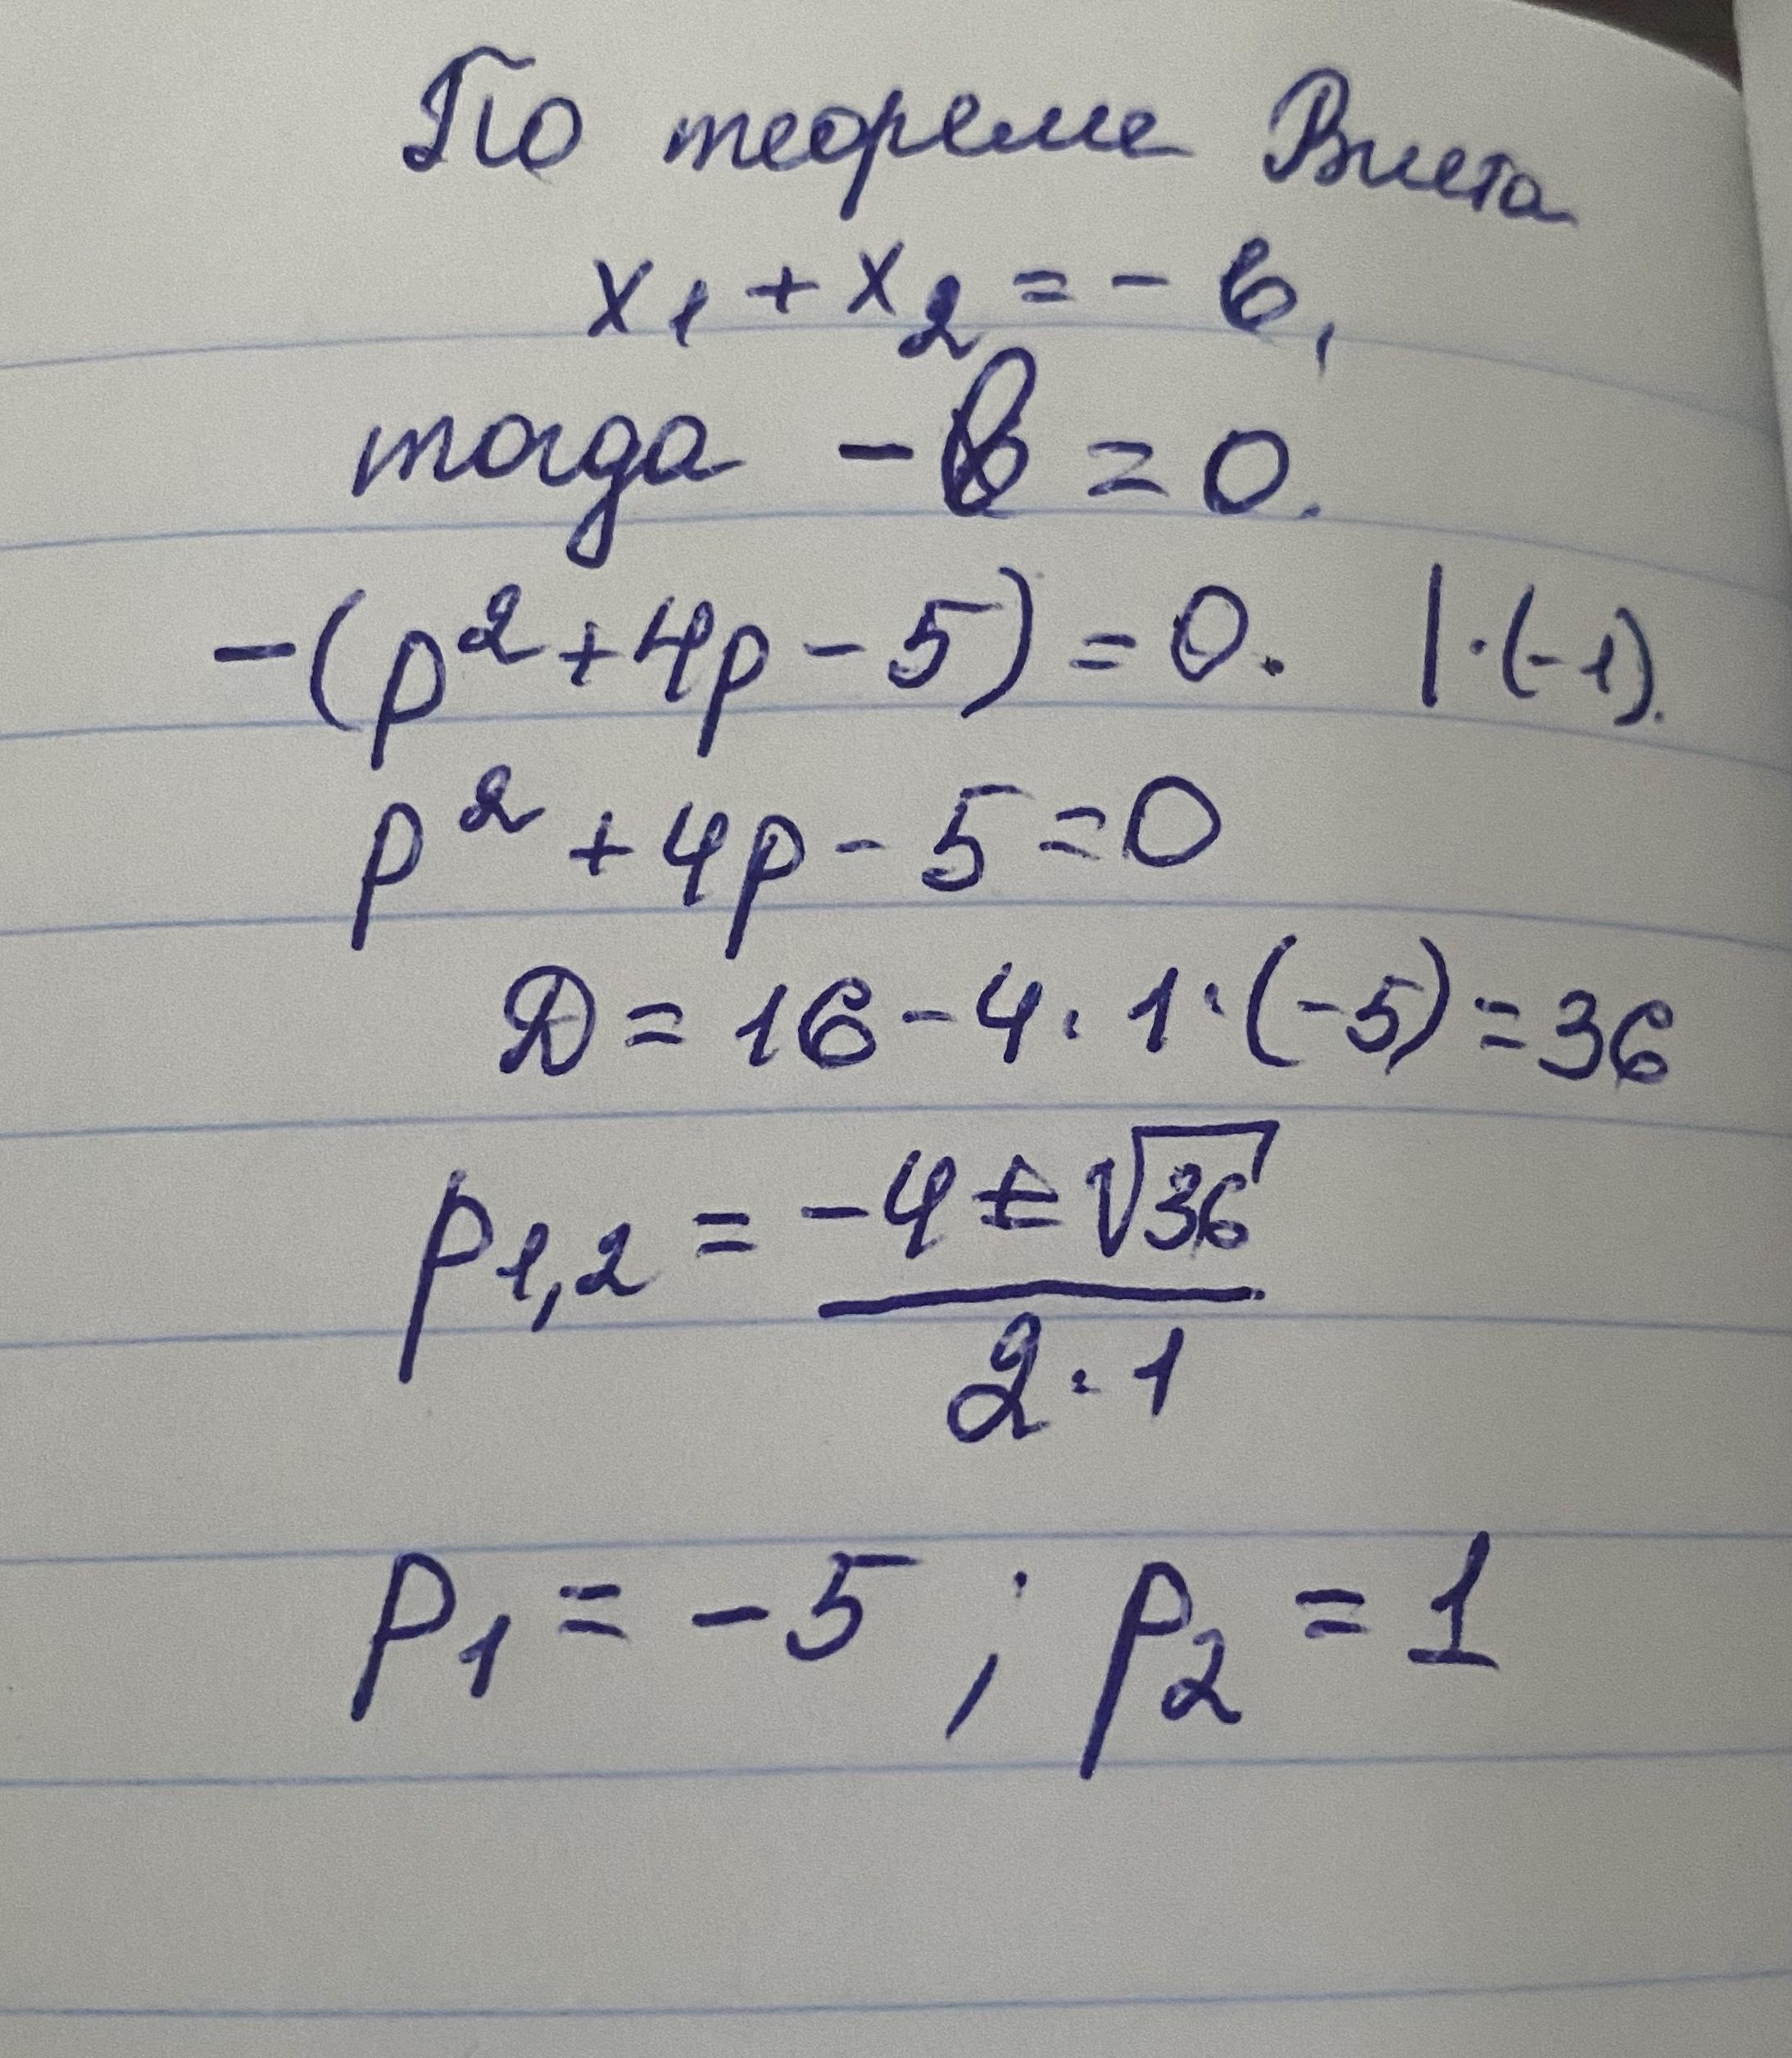 По теореме Виета
x₁ + x₂ = - в,
тогда - в = 0.
-(p² + 4p - 5) = 0. | · (-1).
p² + 4p - 5 = 0
D = 16 - 4 · 1 · (-5) = 36
p₁,₂ = (-4 ± √36) / (2 · 1)
p₁ = -5 ; p₂ = 1